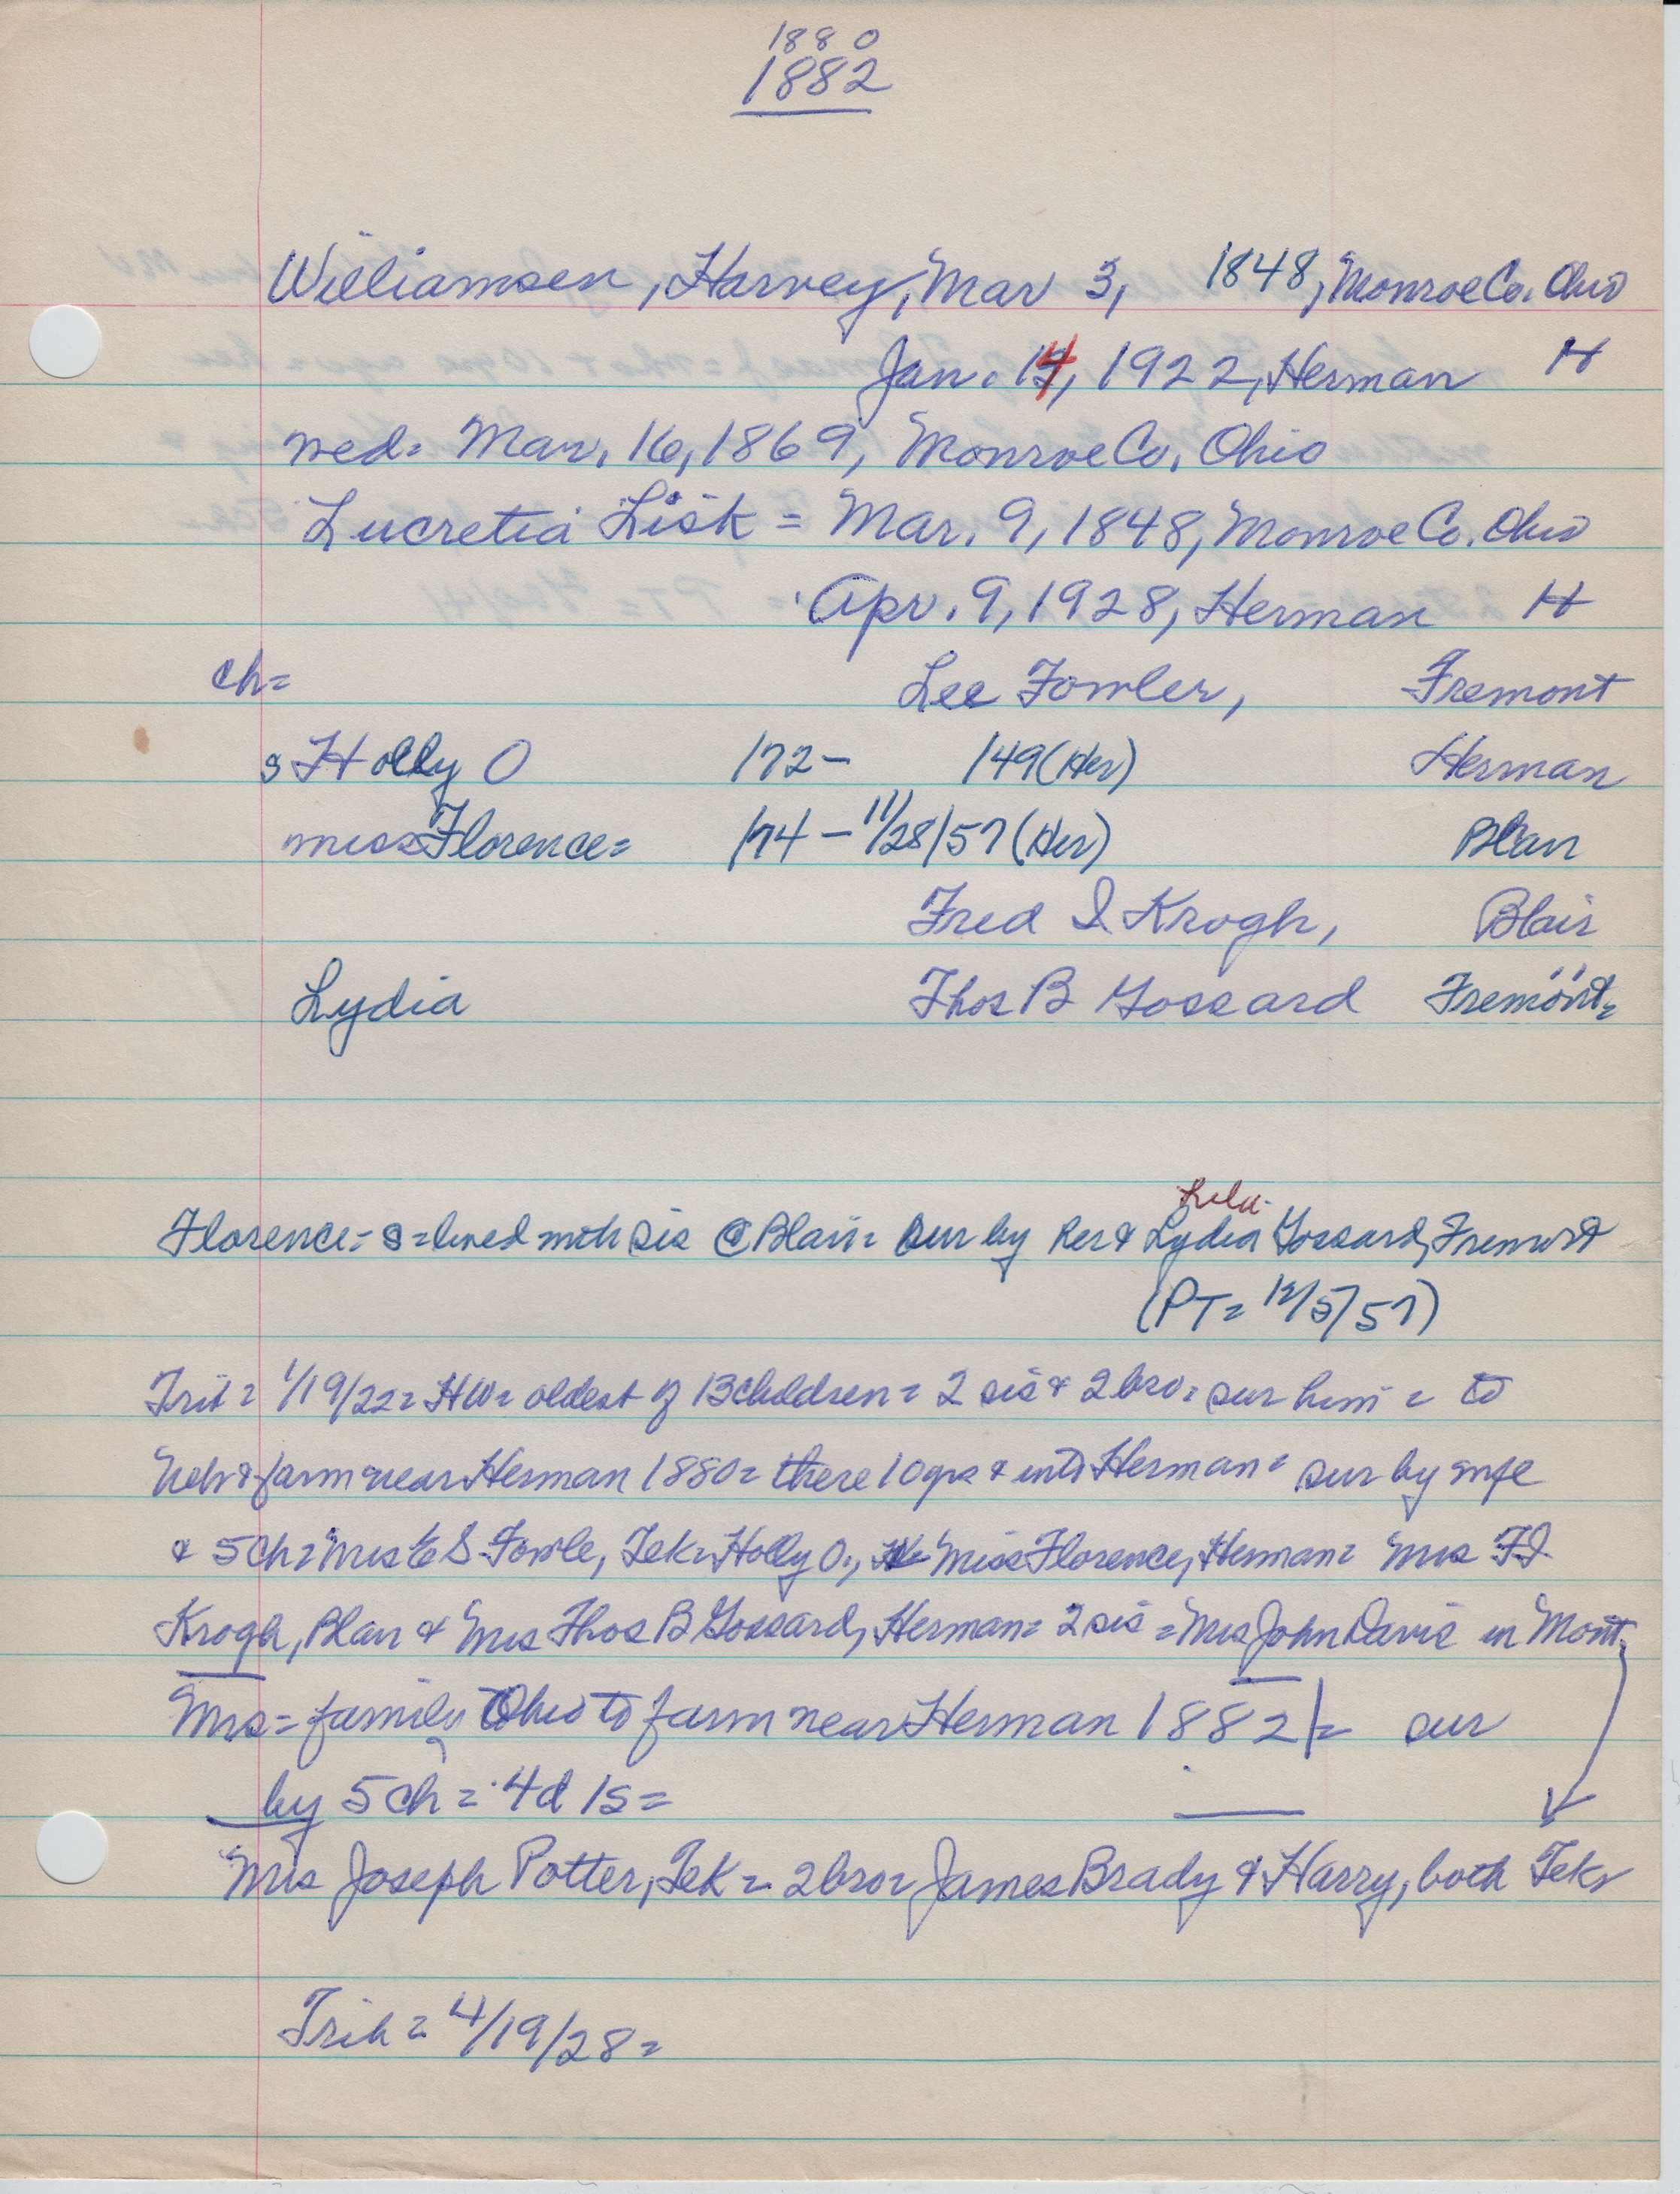 1880
1882
Williamsen, Harvey, Mar 3, 1848, Monroe Co. Ohio
Jan. 14, 1922, Herman H
wed= Mar. 16, 1869, Monroe Co. Ohio
Lucretia Lisk = Mar. 9, 1848, Monroe Co. Ohio
Apr. 9, 1928, Herman H
ch= Lee Fowler, Fremont
s Holly O 172- 149 (Her) Herman
miss Florence= 174 - 11/28/57 (Her) Blair
Fred I Krogh, Blair
Lydia Thos B Gossard Fremont=
Lelu
Florence= s= lived with sis @ Blair= sur by her & Lydia Gossard, Fremont
(PT= 12/5/57)
Trib= 1/19/22= HW= oldest of 13 children= 2 sis & 2 bro= sur him = to
Neb & farm near Herman 1880= there 10 yrs & into Herman= sur by wife
& 5 ch= Mrs E S Fowle, Tek= Holly O., Miss Florence, Herman= Mrs F I
Krogh, Blair & Mrs Thos B Gossard, Herman= 2 sis = Mrs John Davis in Mont.
Mrs= family Ohio to farm near Herman 1882 = sur
by 5 ch = 4d 1s=
Mrs Joseph Potter, Tek = 2 bro= James Brady & Harry, both Tek
Trib = 4/19/28=